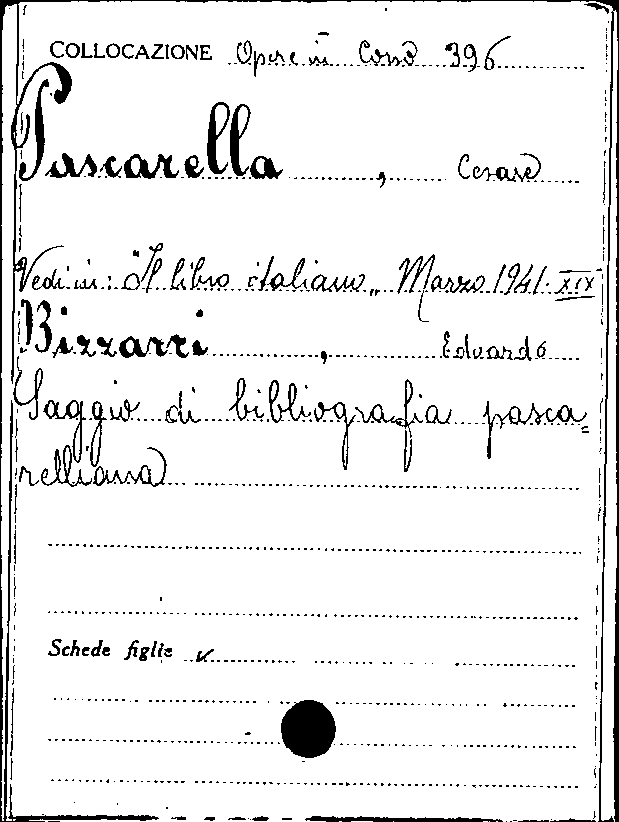 COLLOCAZIONE Opere in Corso 396
Pascarella, Cesare
Vedi in: "Il libro italiano„ Marzo 1941. XIX
Bizzarri, Eduardo
Saggio di bibliografia pasca=
relliana
Schede figlie ✓